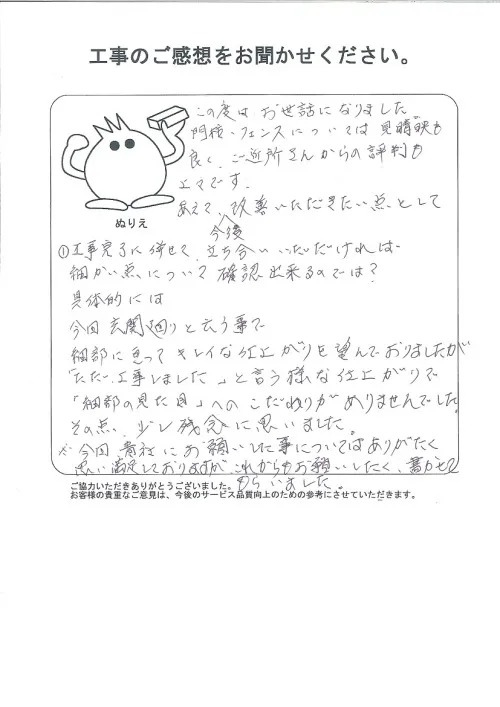 工事のご感想をお聞かせください。
この度は お世話になりました。
門柱・フェンスについては 見晴映も
良く、ご近所さんからの評判も
上々です。
あえて、改善いただきたい点として
今後
ぬりえ
①工事完了に併せて、立ち合いいただければ
細かい点について 確認出来るのでは?
具体的には
今回 玄関廻りと云う事で
細部に迄って キレイな仕上がりを望んでおりましたが
「ただ、工事しました」と言う様な仕上がりで
「細部の見た目」への こだわりがありませんでした。
その点、少し残念に思いました。
※今回 貴社にお願いした事についてはありがたく
思い満足しておりますが、これからもお願いしたく、書かせて
もらいました。
ご協力いただきありがとうございました。
お客様の貴重なご意見は、今後のサービス品質向上のための参考にさせていただきます。